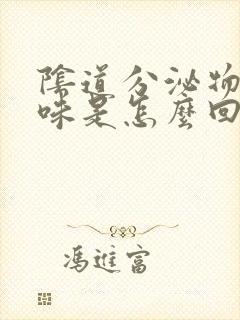 陰道分泌物
味是怎麼回
馮進富